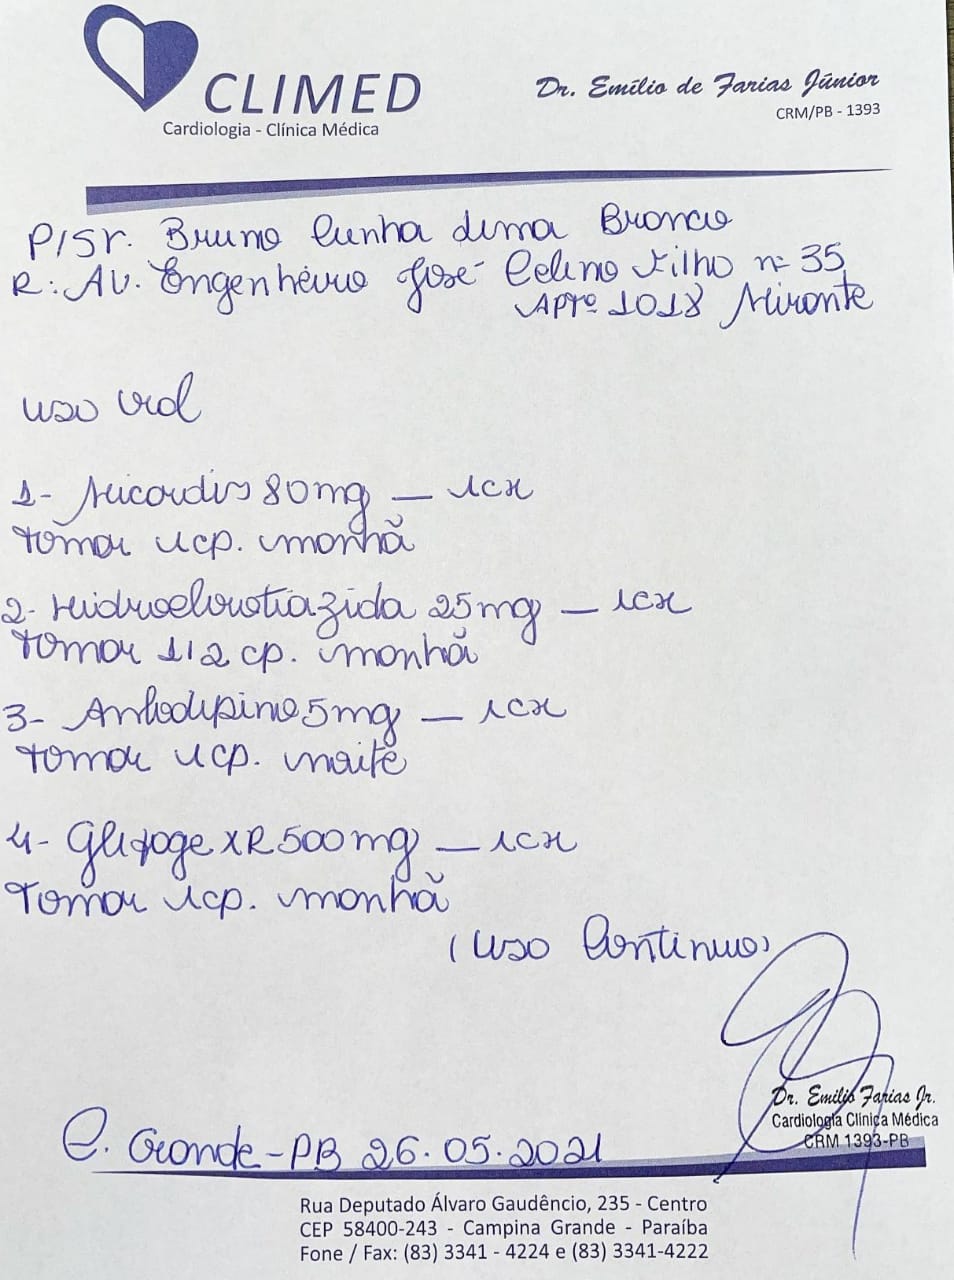 CLIMED
Cardiologia - Clínica Médica
Dr. Emílio de Farias Júnior
CRM/PB - 1393
P/Sr. Bruno Cunha Lima Branco
R: Av. Engenheiro José Celino Filho nº 35
APTº 1018 Mirante
uso oral
1- Micardis 80mg — 1cx
tomar 1cp. manhã
2- Hidroclorotiazida 25mg — 1cx
tomar 1/2 cp. manhã
3- Anlodipino 5mg — 1cx
tomar 1cp. noite
4- Glifage XR 500mg — 1cx
Tomar 1cp. manhã
(uso Contínuo)
Dr. Emílio Farias Jr.
Cardiologia Clínica Médica
CRM 1393-PB
C. Grande-PB 26.05.2021
Rua Deputado Álvaro Gaudêncio, 235 - Centro
CEP 58400-243 - Campina Grande - Paraíba
Fone / Fax: (83) 3341 - 4224 e (83) 3341-4222